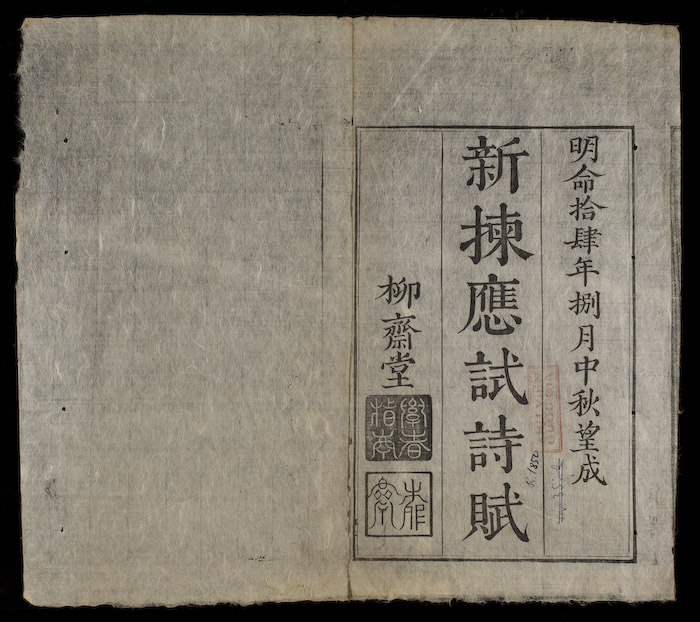 明命拾肆年捌月中秋望成
新揀應試詩賦
柳齋堂
學者
指南